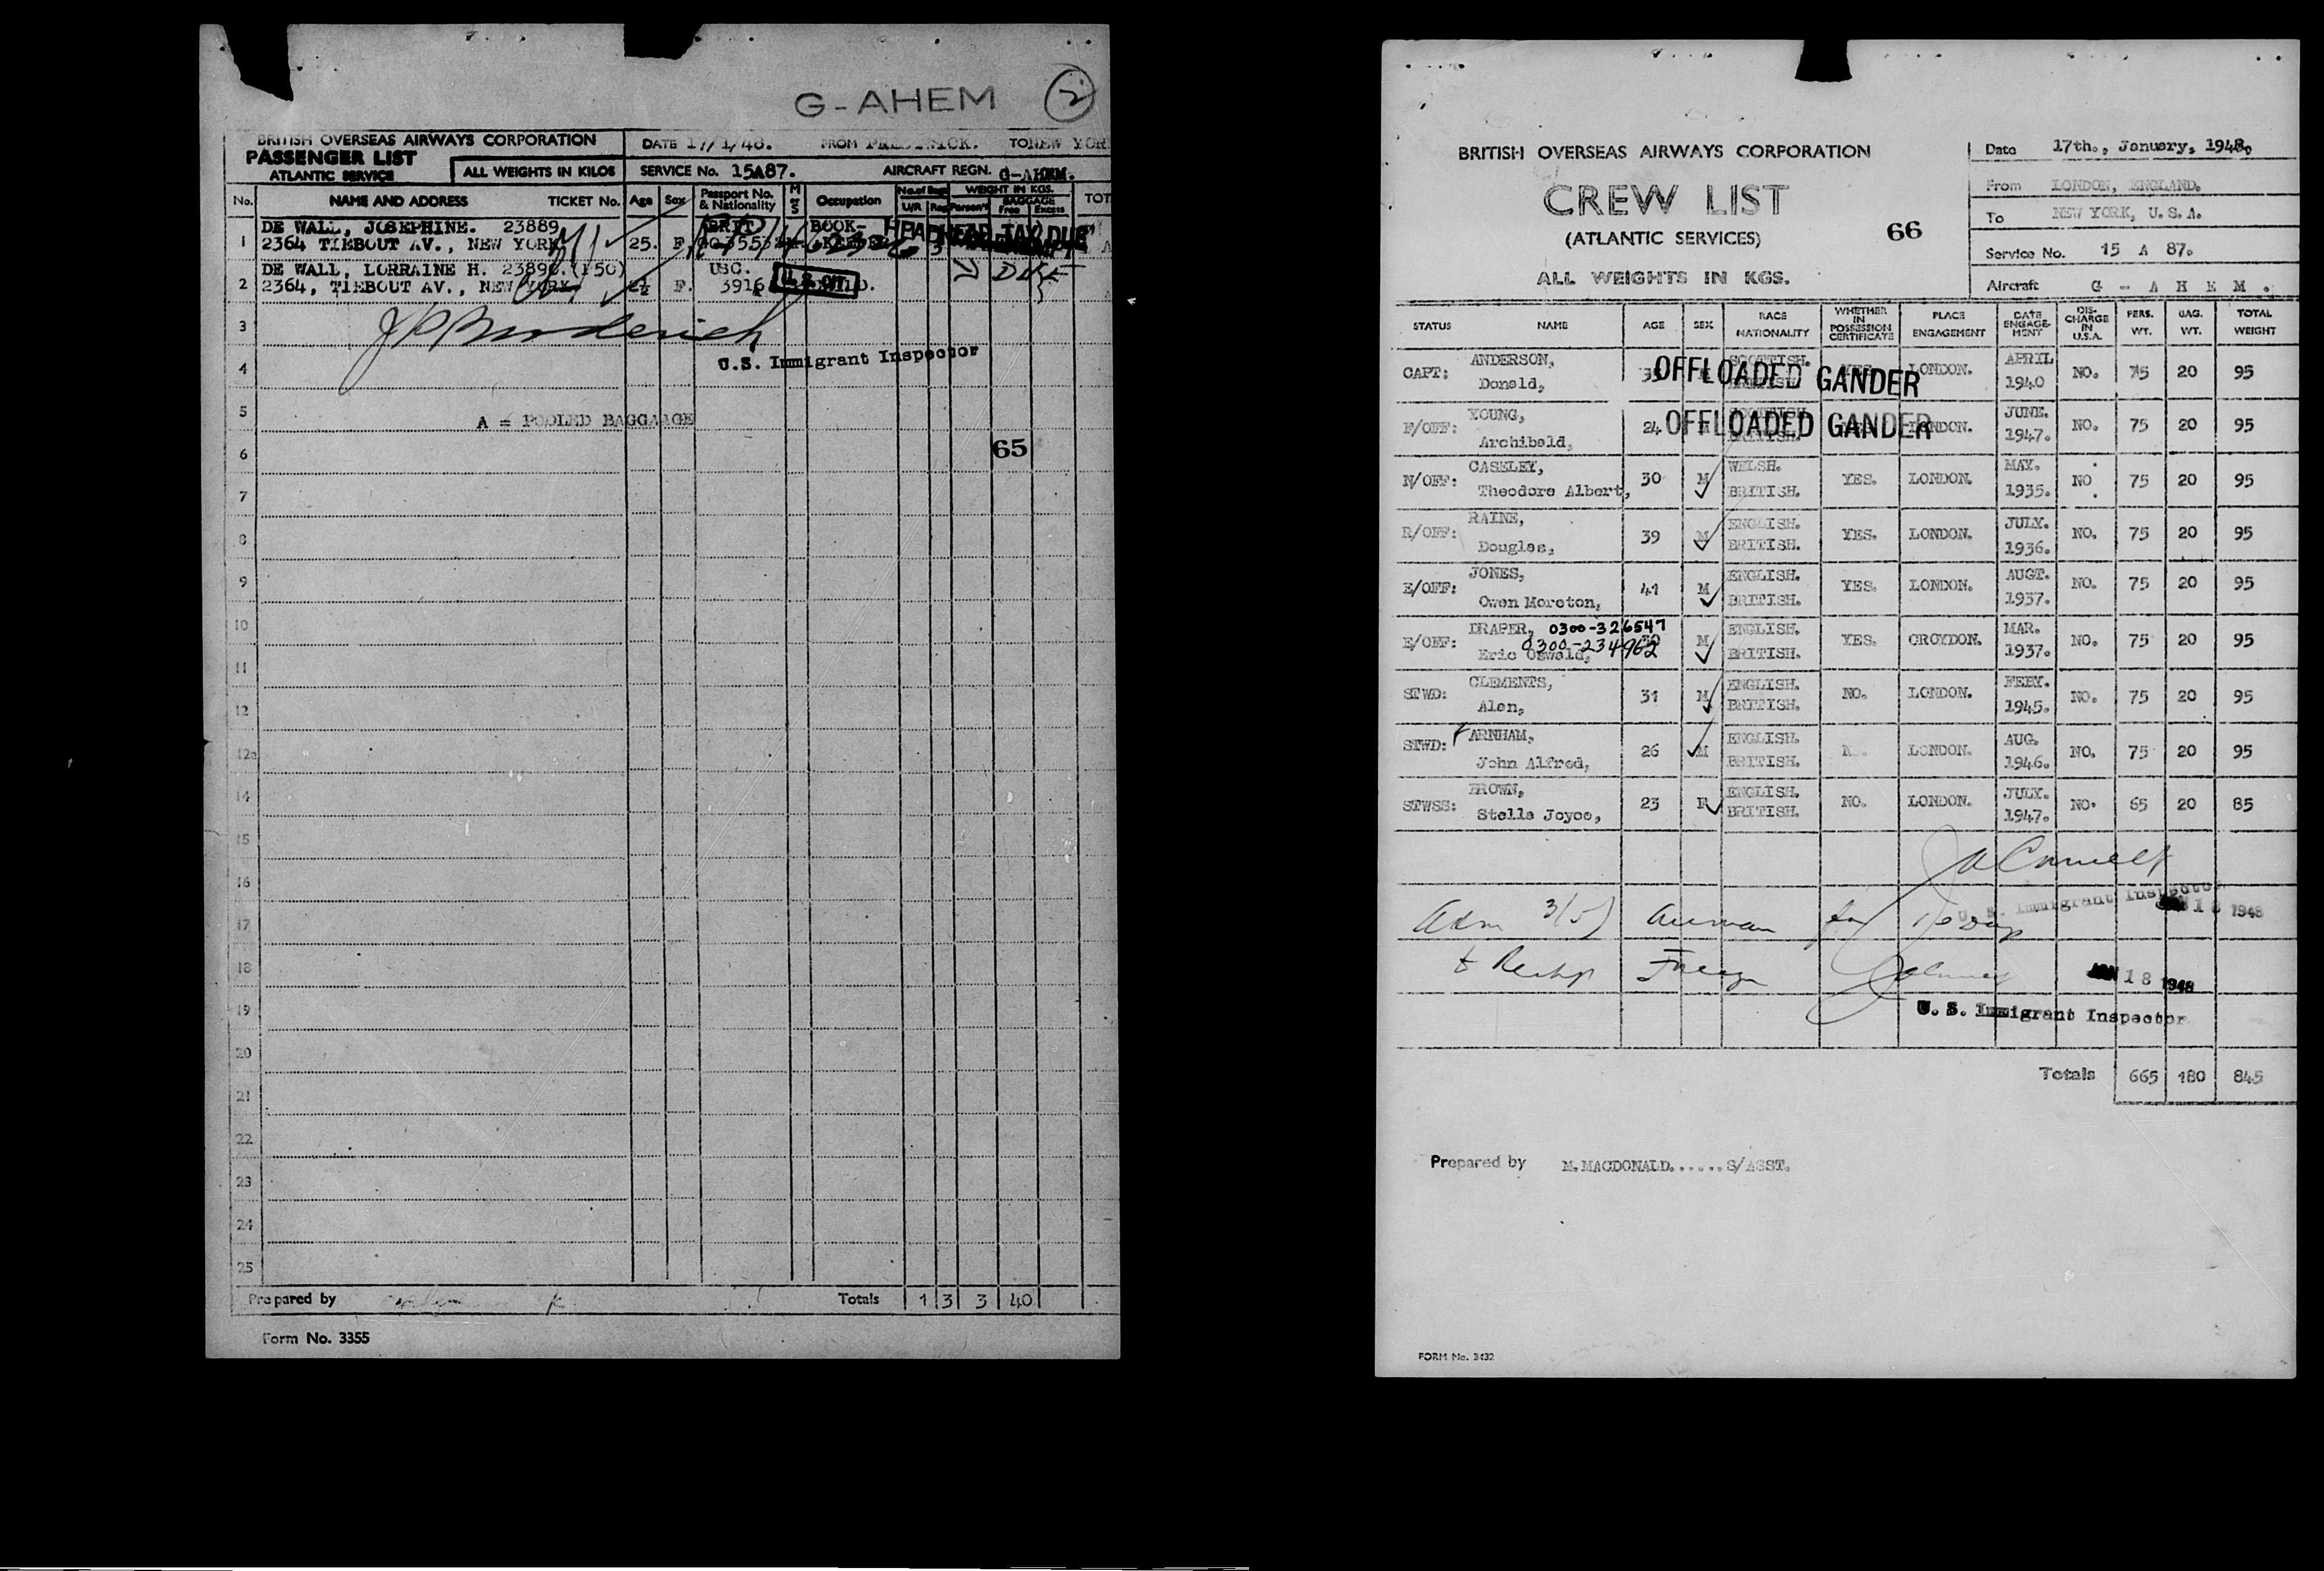 G-AHEM 2
BRITISH OVERSEAS AIRWAYS CORPORATION
PASSENGER LIST
ATLANTIC SERVICE
ALL WEIGHTS IN KILOS
DATE 17/1/48. FROM PRESTWICK. TO NEW YOR
SERVICE No. 15A87. AIRCRAFT REGN. G-AHEM.
No. NAME AND ADDRESS TICKET No. Age Sex Passport No. & Nationality M W S Occupation No. of Bags U/R Reg WEIGHT IN KGS. Person'l BAGGAGE Free Excess TOT
DE WALL, JOSEPHINE. 23889 BRIT BOOK- HEAD TAX DUE
1 2364 TIEBOUT AV., NEW YORK 25. F.
DE WALL, LORRAINE H. 23890. (F50) USC.
2 2364, TIEBOUT AV., NEW YORK. 2½ F. 3916 U.S. CIT
3
U.S. Immigrant Inspector
4
5 A = POOLED BAGGAGE
65
6
7
8
9
10
11
12
12a
14
15
16
17
18
19
20
21
22
23
24
25
Prepared by Totals 1 3 3 40
Form No. 3355
BRITISH OVERSEAS AIRWAYS CORPORATION
CREW LIST
(ATLANTIC SERVICES)
66
ALL WEIGHTS IN KGS.
Date 17th., January, 1948.
From LONDON, ENGLAND.
To NEW YORK, U.S.A.
Service No. 15 A 87.
Aircraft G - A H E M .
STATUS NAME AGE SEX RACE NATIONALITY WHETHER IN POSSESSION CERTIFICATE PLACE ENGAGEMENT DATE ENGAGE-MENT DIS-CHARGE IN U.S.A. PERS. WT. BAG. WT. TOTAL WEIGHT
ANDERSON, SCOTTISH. APRIL
CAPT: Donald, OFFLOADED GANDER LONDON. 1940 NO. 75 20 95
YOUNG, JUNE.
F/OFF: Archibald, 24 OFFLOADED GANDER LONDON. 1947. NO. 75 20 95
CASELEY, WELSH. MAY.
N/OFF: Theodore Albert, 30 M BRITISH. YES. LONDON. 1935. NO. 75 20 95
RAINE, ENGLISH. JULY.
R/OFF: Douglas, 39 M BRITISH. YES. LONDON. 1936. NO. 75 20 95
JONES, ENGLISH. AUGT.
E/OFF: Owen Moreton, 41 M BRITISH. YES. LONDON. 1937. NO. 75 20 95
DRAPER, 0300-326547 ENGLISH. MAR.
E/OFF: Eric Oswald, 0300-234962 M BRITISH. YES. CROYDON. 1937. NO. 75 20 95
CLEMENTS, ENGLISH. FEBY.
STWD: Alan, 31 M BRITISH. NO. LONDON. 1945. NO. 75 20 95
FARNHAM, ENGLISH. AUG.
STWD: John Alfred, 26 M BRITISH. LONDON. 1946. NO. 75 20 95
BROWN, ENGLISH. JULY.
STWSS: Stella Joyce, 23 F BRITISH. NO. LONDON. 1947. NO. 65 20 85
U. S. Immigrant Inspector
JAN 18 1948
Adm 3(5) Airman for
JAN 18 1948
U. S. Immigrant Inspector
Totals 665 180 845
Prepared by M. MACDONALD......S/ASST.
FORM No. 3432